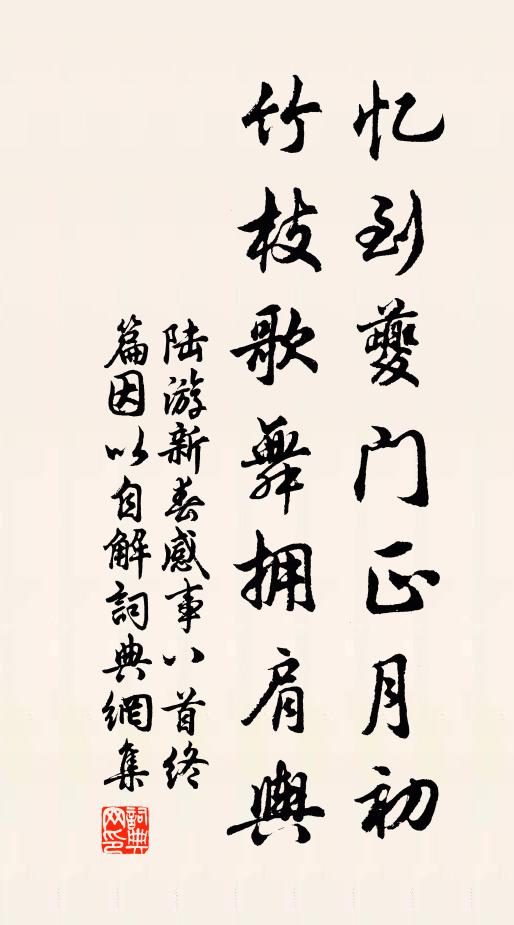 忆到夔门正月初
竹枝歌舞拥肩舆
陆游新春感事八首终
篇因以自解詞典網集
詞典网印